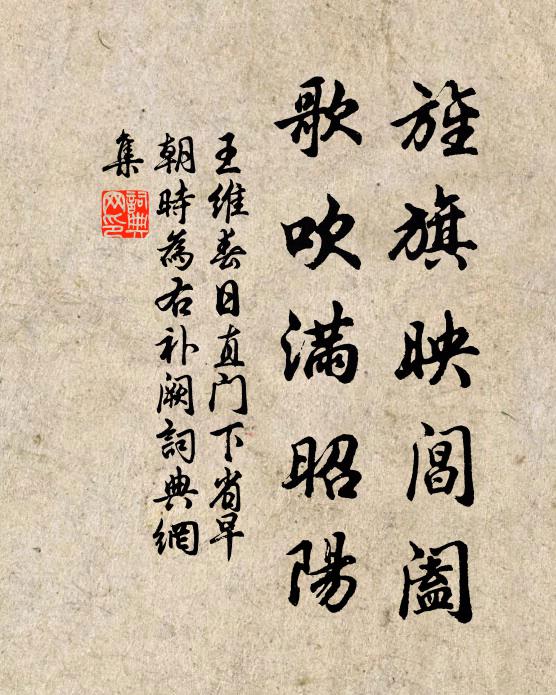 旌旗映閶闔
歌吹滿昭陽
王維春日直门下省早
朝時為右补阙詞典網
集
詞典
网印